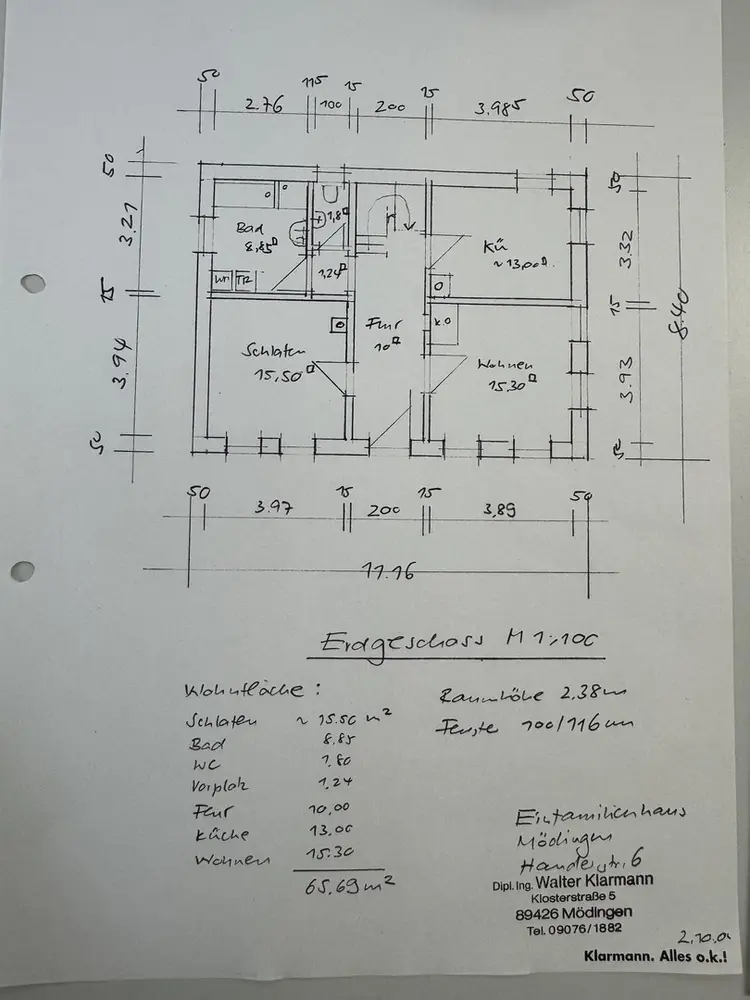 50 2.76 115 100 15 200 15 3.985 50
50 3.27 15 3.94 50
50 3.32 15 3.93 50
8.40
Bad
8,85
1,8
1,24
WM TR
Kü
~ 13,00
Flur
10
K.O
Schlafen
15,50
Wohnen
15.30
50 3.97 15 200 15 3,89 50
11.16
Erdgeschoss M 1:100
Wohnfläche :
Schlafen ~ 15.50 m²
Bad 8.85
WC 1,80
Vorplatz 1,24
Flur 10,00
Küche 13,00
Wohnen 15.30
65,69 m²
Raumhöhe 2,38m
Fenster 100/116 cm
Einfamilienhaus
Mödingen
6
Dipl. Ing. Walter Klarmann
Klosterstraße 5
89426 Mödingen
Tel. 09076/1882
2.10.0
Klarmann. Alles o.k.!